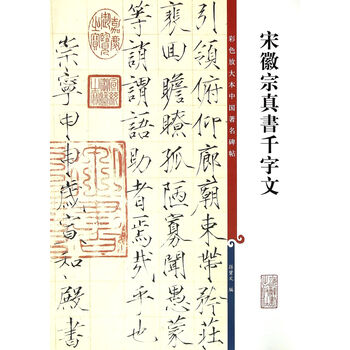 宋徽宗真書千字文
彩色放大本中国著名碑帖
孫寶文 編
引領俯仰廊廟束帶矜莊
裴回瞻瞭孤陋寡聞愚蒙
等誚謂語助者焉哉乎也
崇寧甲申歲宣和殿書
嘉慶
御覽
之寶